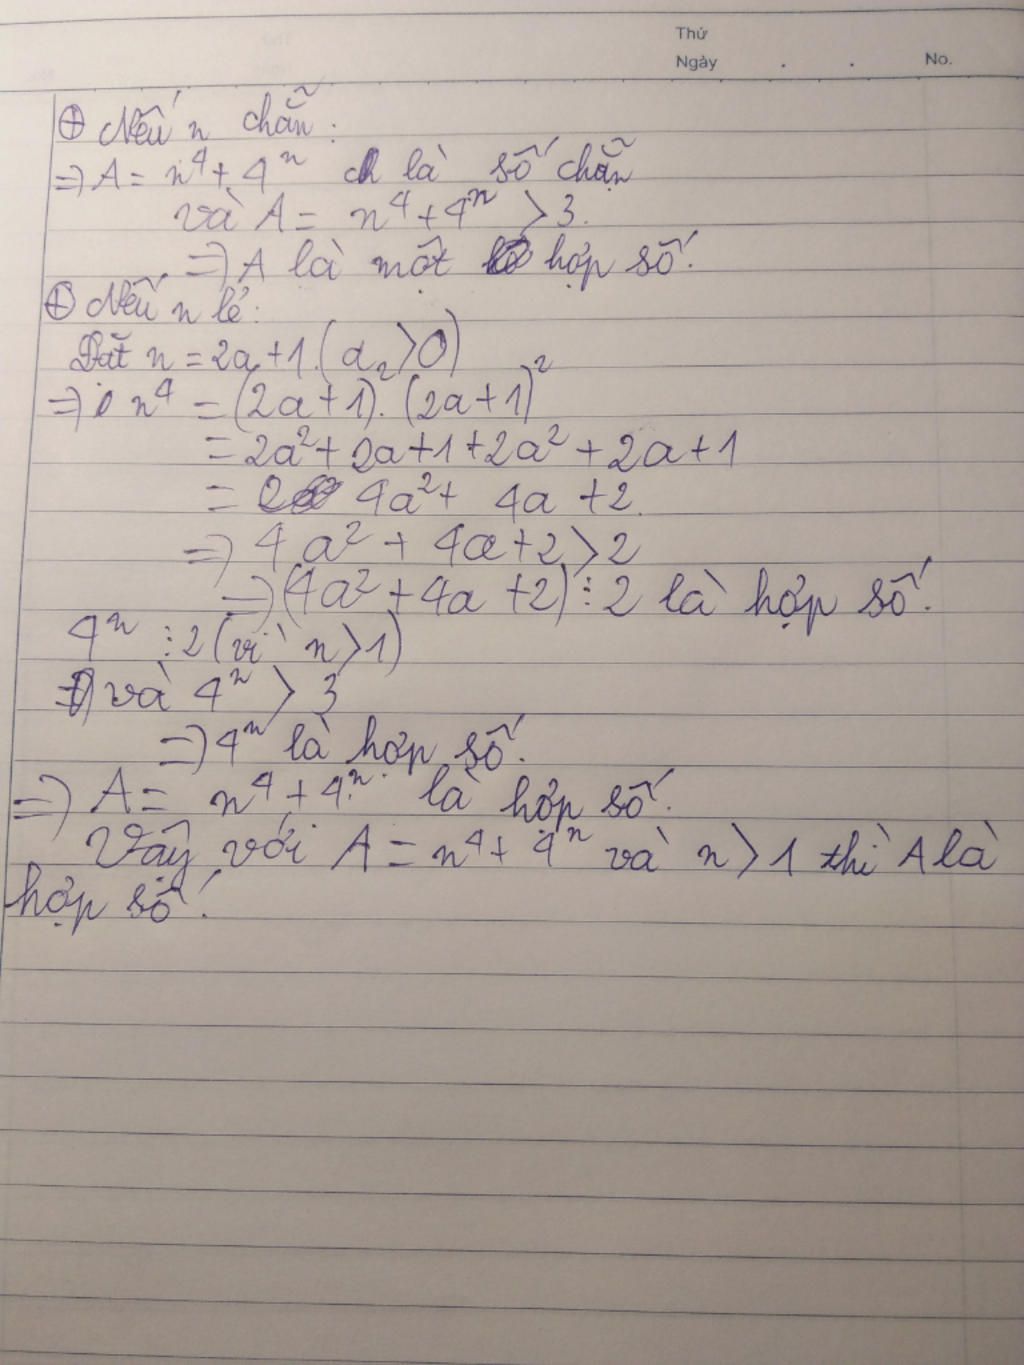 Thứ
Ngày . . No.
⊕ Nếu n chẵn:
=> A = n⁴ + 4ⁿ là số chẵn
và A = n⁴ + 4ⁿ > 3.
=> A là một hợp số.
⊕ Nếu n lẻ:
Đặt n = 2a + 1. (a > 0)
=> n⁴ = (2a+1). (2a+1)²
= 2a² + 2a + 1 + 2a² + 2a + 1
= 4a² + 4a + 2.
=> 4a² + 4a + 2 > 2
=> (4a² + 4a + 2) ⋮ 2 là hợp số.
4ⁿ ⋮ 2 (vì n > 1)
và 4ⁿ > 3
=> 4ⁿ là hợp số.
=> A = n⁴ + 4ⁿ là hợp số.
Vậy với A = n⁴ + 4ⁿ và n > 1 thì A là
hợp số.